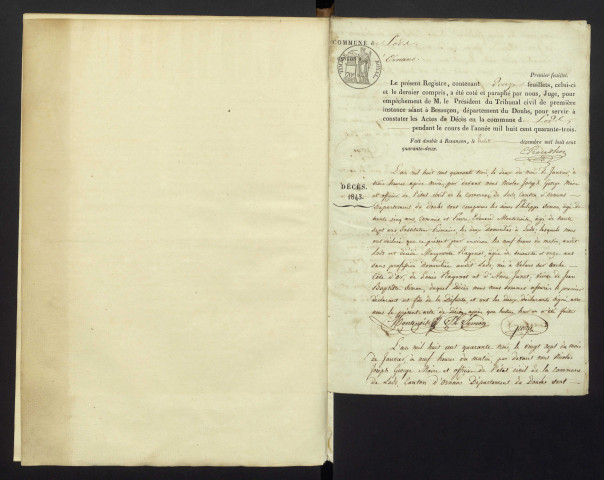 COMMUNE d Lods
Ornans
Premier feuillet.
Le présent Registre, contenant Douze feuillets, celui-ci
et le dernier compris, a été coté et paraphé par nous, Juge, pour
empêchement de M. le Président du Tribunal civil de première
instance séant à Besançon, département du Doubs, pour servir à
constater les Actes de Décès en la commune d Lods
pendant le cours de l'année mil huit cent quarante-trois.
Fait double à Besançon, le décembre mil huit cent
quarante-deux.
DÉCÈS.
1843.
L'an mil huit cent quarante trois, le deux du mois de Janvier, à
trois heures après midi, par devant nous Nicolas Joseph George Maire
et officier de l'état civil de la commune de Lods, Canton d'Ornans
Département du Doubs sont comparus les sieurs Philippe Simon, âgé de
trente cinq ans et Pierre âgé de trente
sept ans Instituteur Primaire, les deux domiciliés à Lods, lesquels nous
ont déclaré que le présent jour environ les neuf heures du matin, audit
Lods est décédée Marguerite Ragonet, âgée de soixante et onze ans
sans profession domiciliée audit Lods, née à
Côte d'Or, de Louis Ragonet et d'Anne veuve de Jean
Baptiste Simon, duquel Décès nous nous sommes assurés, le premier
déclarant est fils de la défunte, et ont les deux déclarants signé avec
nous le présent acte de décès, après que lecture leur en a été faite
Ph Simon George
L'an mil huit cent quarante trois, le vingt sept du mois
de Janvier, à neuf heures du matin, par devant nous Nicolas
Joseph George Maire et officier de l'état civil de la commune
de Lods, Canton d'Ornans Département du Doubs sont